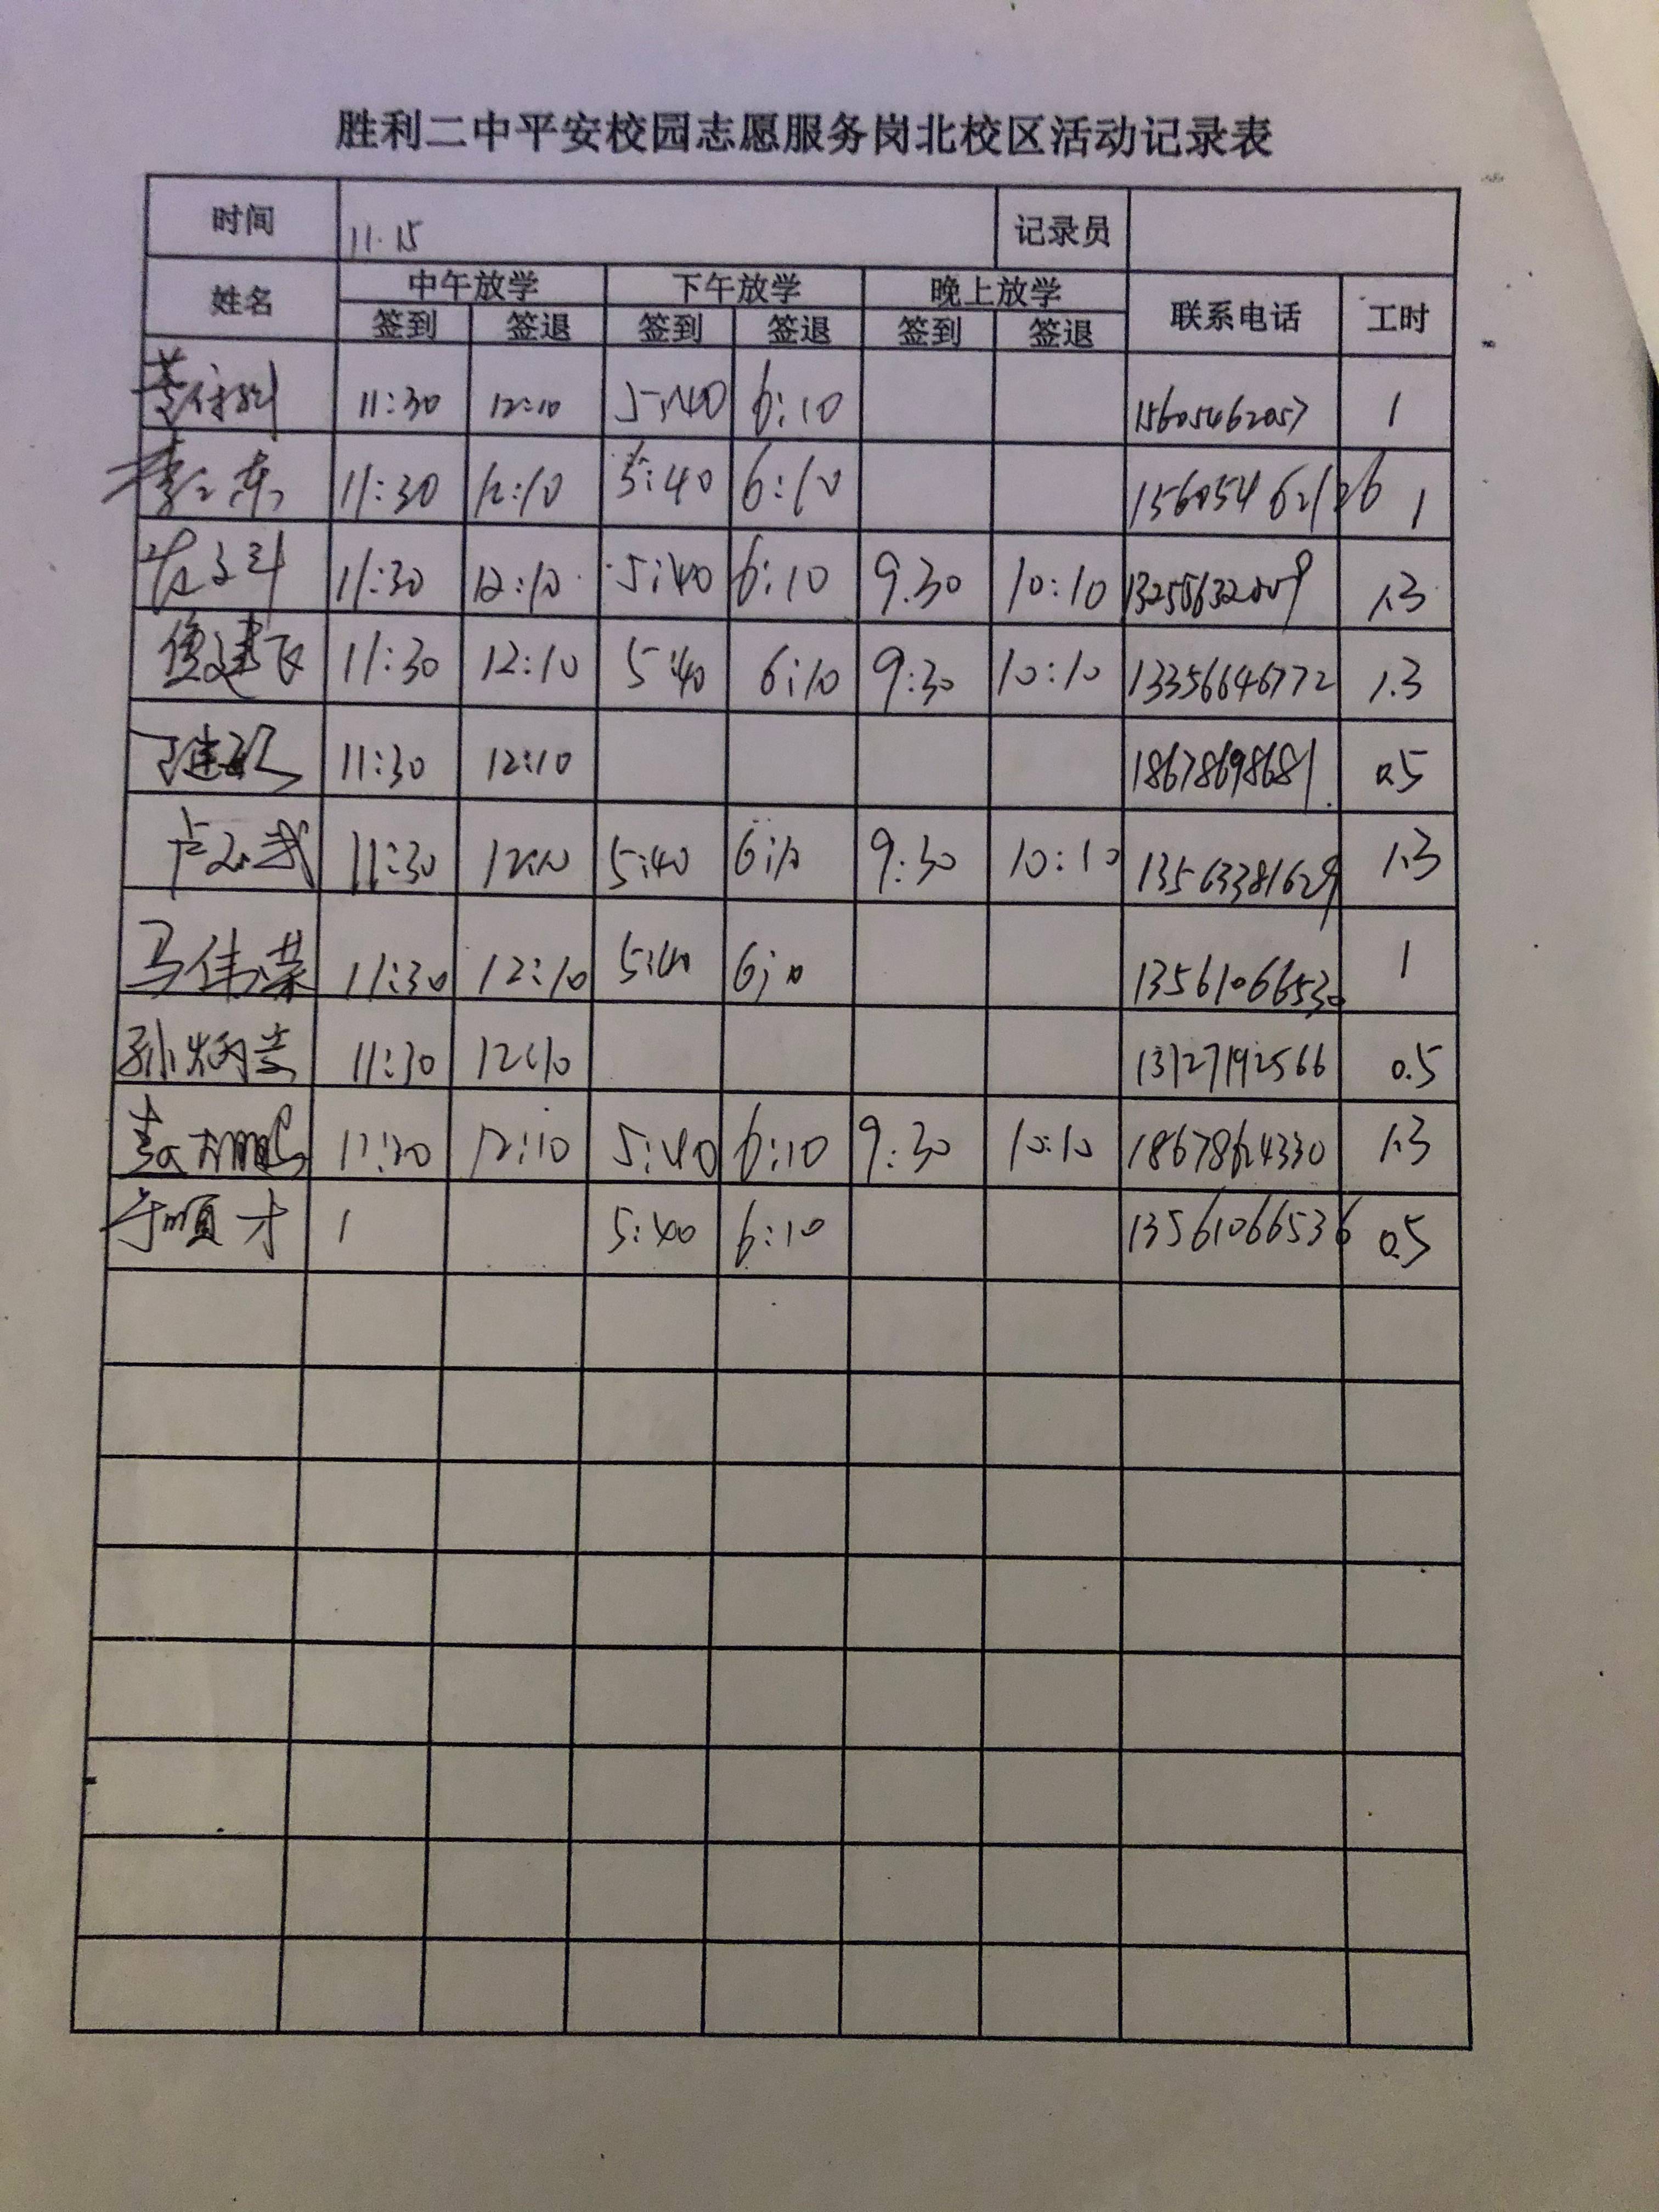 胜利二中平安校园志愿服务岗北校区活动记录表
时间 11.15 记录员
姓名 中午放学 下午放学 晚上放学 联系电话 工时
签到 签退 签到 签退 签到 签退
11:30 12:10 5:40 6:10 15605462057 1
11:30 12:10 5:40 6:10 15605462126 1
11:30 12:10 5:40 6:10 9:30 10:10 1.3
11:30 12:10 5:40 6:10 9:30 10:10 13356646772 1.3
11:30 12:10 18678698681 0.5
11:30 12:10 5:40 6:10 9:30 10:10 13563381629 1.3
马伟荣 11:30 12:10 5:40 6:10 13561066530 1
孙炳 11:30 12:10 13127192566 0.5
11:30 12:10 5:40 6:10 9:30 10:10 18678624330 1.3
于顺才 1 5:40 6:10 13561066536 0.5